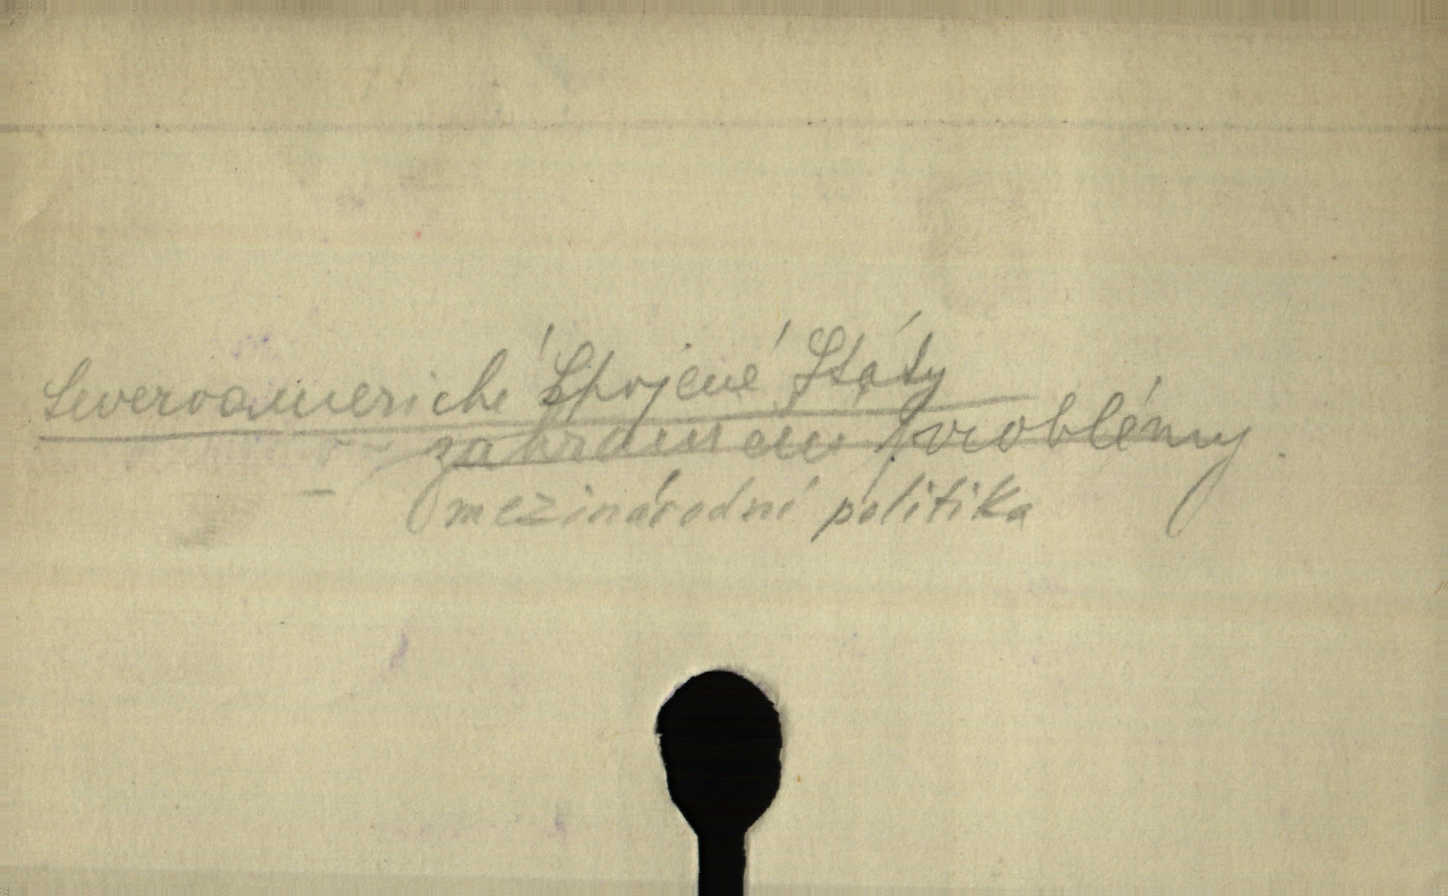 Severoamerické Spojené Státy
zahraniční problémy.
- mezinárodní politika